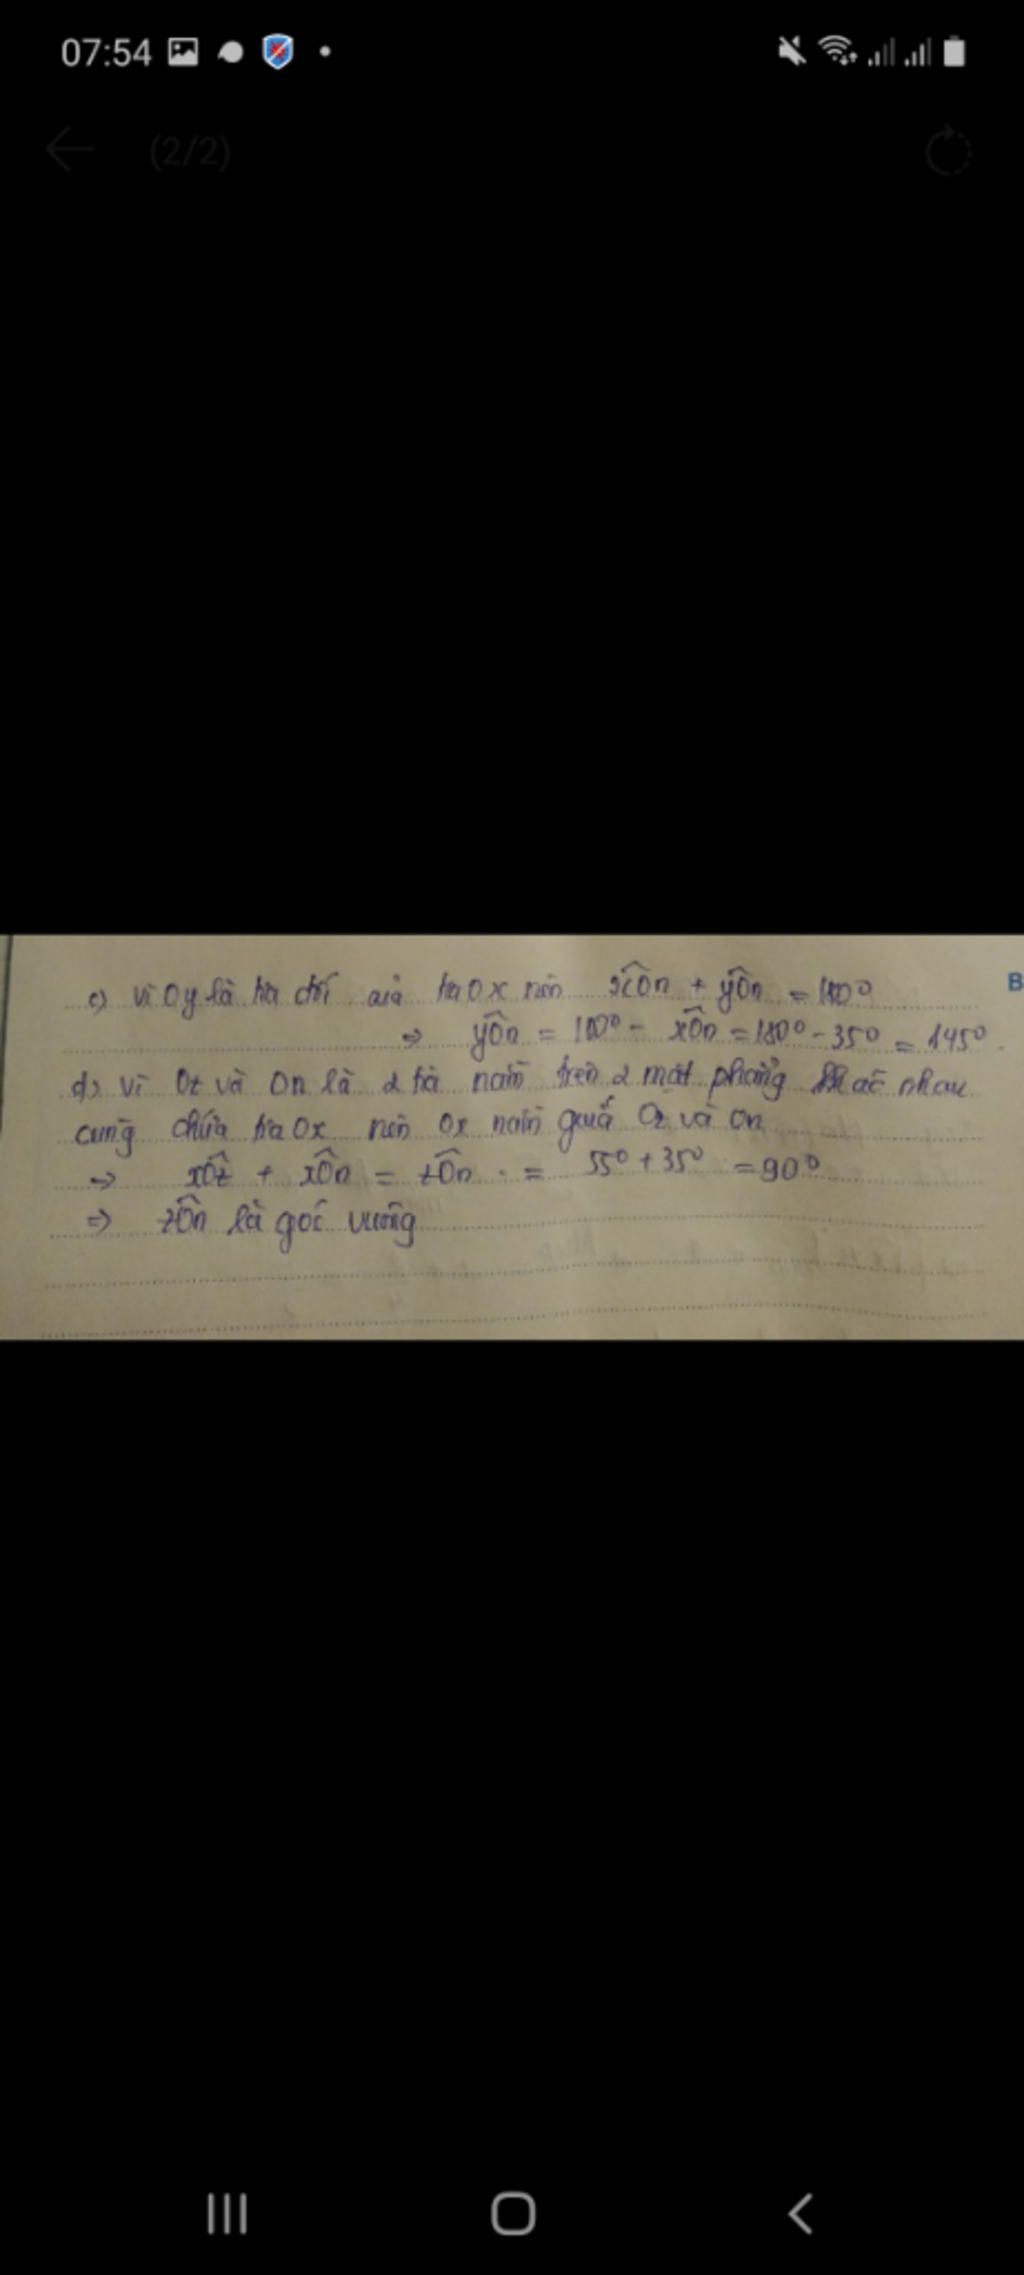 07:54
(2/2)
c) Vì Oy là tia đối của tia Ox nên xÔn + yÔn = 180°
B
=> yÔn = 180° - xÔn = 180° - 35° = 145°.
d) Vì Oz và On là 2 tia nằm trên 2 mặt phẳng khác nhau
cùng chứa tia Ox nên Ox nằm giữa Oz và On
=> xÔz + xÔn = zÔn = 55° + 35° = 90°
=> zÔn là góc vuông